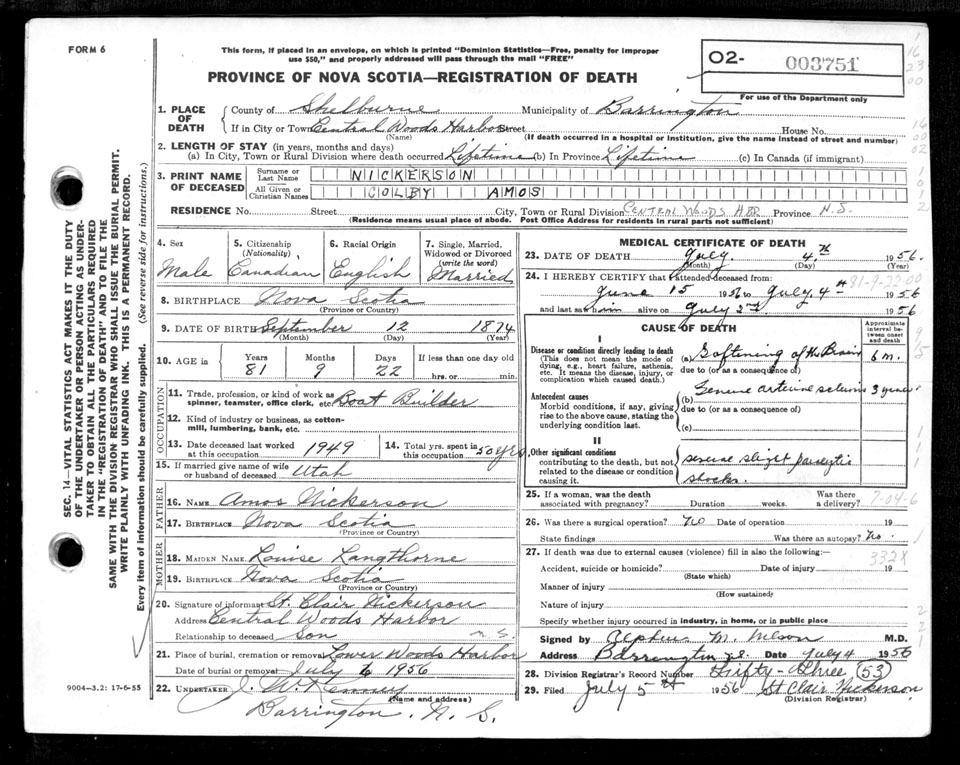 FORM 6
This form, if placed in an envelope, on which is printed "Dominion Statistics—Free, penalty for improper
use $50," and properly addressed will pass through the mail "FREE"
PROVINCE OF NOVA SCOTIA—REGISTRATION OF DEATH
02- 003751
For use of the Department only
1. PLACE OF DEATH
County of Shelburne Municipality of Barrington
If in City or Town Central Woods Harbor Street House No.
(Name) (If death occurred in a hospital or institution, give the name instead of street and number)
2. LENGTH OF STAY (in years, months and days)
(a) In City, Town or Rural Division where death occurred Lifetime (b) In Province Lifetime (c) In Canada (if immigrant)
3. PRINT NAME OF DECEASED
Surname or Last Name NICKERSON
All Given or Christian Names COLBY AMOS
RESIDENCE No. Street City, Town or Rural Division CENTRAL WOODS HBR Province N.S.
(Residence means usual place of abode. Post Office Address for residents in rural parts not sufficient)
4. Sex Male
5. Citizenship (Nationality) Canadian
6. Racial Origin English
7. Single, Married, Widowed or Divorced (write the word) Married
8. BIRTHPLACE Nova Scotia
(Province or Country)
9. DATE OF BIRTH September 12 1874
(Month) (Day) (Year)
10. AGE in Years Months Days If less than one day old
81 9 22 hrs. or min.
OCCUPATION
11. Trade, profession, or kind of work as
spinner, teamster, office clerk, etc. Boat Builder
12. Kind of industry or business, as cotton-
mill, lumbering, bank, etc.
13. Date deceased last worked
at this occupation 1949
14. Total yrs. spent in
this occupation 50 yrs
15. If married give name of wife
or husband of deceased Utah
FATHER
16. NAME Amos Nickerson
17. BIRTHPLACE Nova Scotia
(Province or Country)
MOTHER
18. MAIDEN NAME Louise Langthorne
19. BIRTHPLACE Nova Scotia
(Province or Country)
20. Signature of informant St. Clair Nickerson
Address Central Woods Harbor
Relationship to deceased Son N.S.
21. Place of burial, cremation or removal Lower Woods Harbor
Date of burial or removal July 6 1956
22. UNDERTAKER J. W. Kenney
(Name and address)
Barrington, N.S.
9004—3.2: 17-6-55
SEC. 14—VITAL STATISTICS ACT MAKES IT THE DUTY
OF THE UNDERTAKER OR PERSON ACTING AS UNDER-
TAKER TO OBTAIN ALL THE PARTICULARS REQUIRED
IN THE "REGISTRATION OF DEATH" AND TO FILE THE
SAME WITH THE DIVISION REGISTRAR WHO SHALL ISSUE THE BURIAL PERMIT.
WRITE PLAINLY WITH UNFADING INK. THIS IS A PERMANENT RECORD.
Every item of information should be carefully supplied. (See reverse side for instructions.)
MEDICAL CERTIFICATE OF DEATH
23. DATE OF DEATH July 4th 1956
(Month) (Day) (Year)
24. I HEREBY CERTIFY that I attended deceased from
June 15 1956 to July 4th 1956
and last saw him alive on July 3rd 1956
CAUSE OF DEATH
Approximate interval between onset and death
I
Disease or condition directly leading to death
(This does not mean the mode of
dying, e.g., heart failure, asthenia,
etc. It means the disease, injury, or
complication which caused death.)
(a) Softening of the Brain 6 m.
due to (or as a consequence of)
Antecedent causes
Morbid conditions, if any, giving
rise to the above cause, stating the
underlying condition last.
(b) 3 years
due to (or as a consequence of)
(c)
II
Other significant conditions
contributing to the death, but not
related to the disease or condition
causing it.
several slight paralytic
shocks.
25. If a woman, was the death
associated with pregnancy? Duration weeks. Was there a delivery? 7-04-6
26. Was there a surgical operation? No Date of operation 19
State findings Was there an autopsy? No.
27. If death was due to external causes (violence) fill in also the following:—
332X
Accident, suicide or homicide? Date of injury 19
(State which)
Manner of injury
(How sustained)
Nature of injury
Specify whether injury occurred in industry, in home, or in public place
Signed by M. M.D.
Address Barrington N.S. Date July 4 1956
28. Division Registrar's Record Number Fifty-Three (53)
29. Filed July 5th 1956 St Clair Nickerson
(Division Registrar)